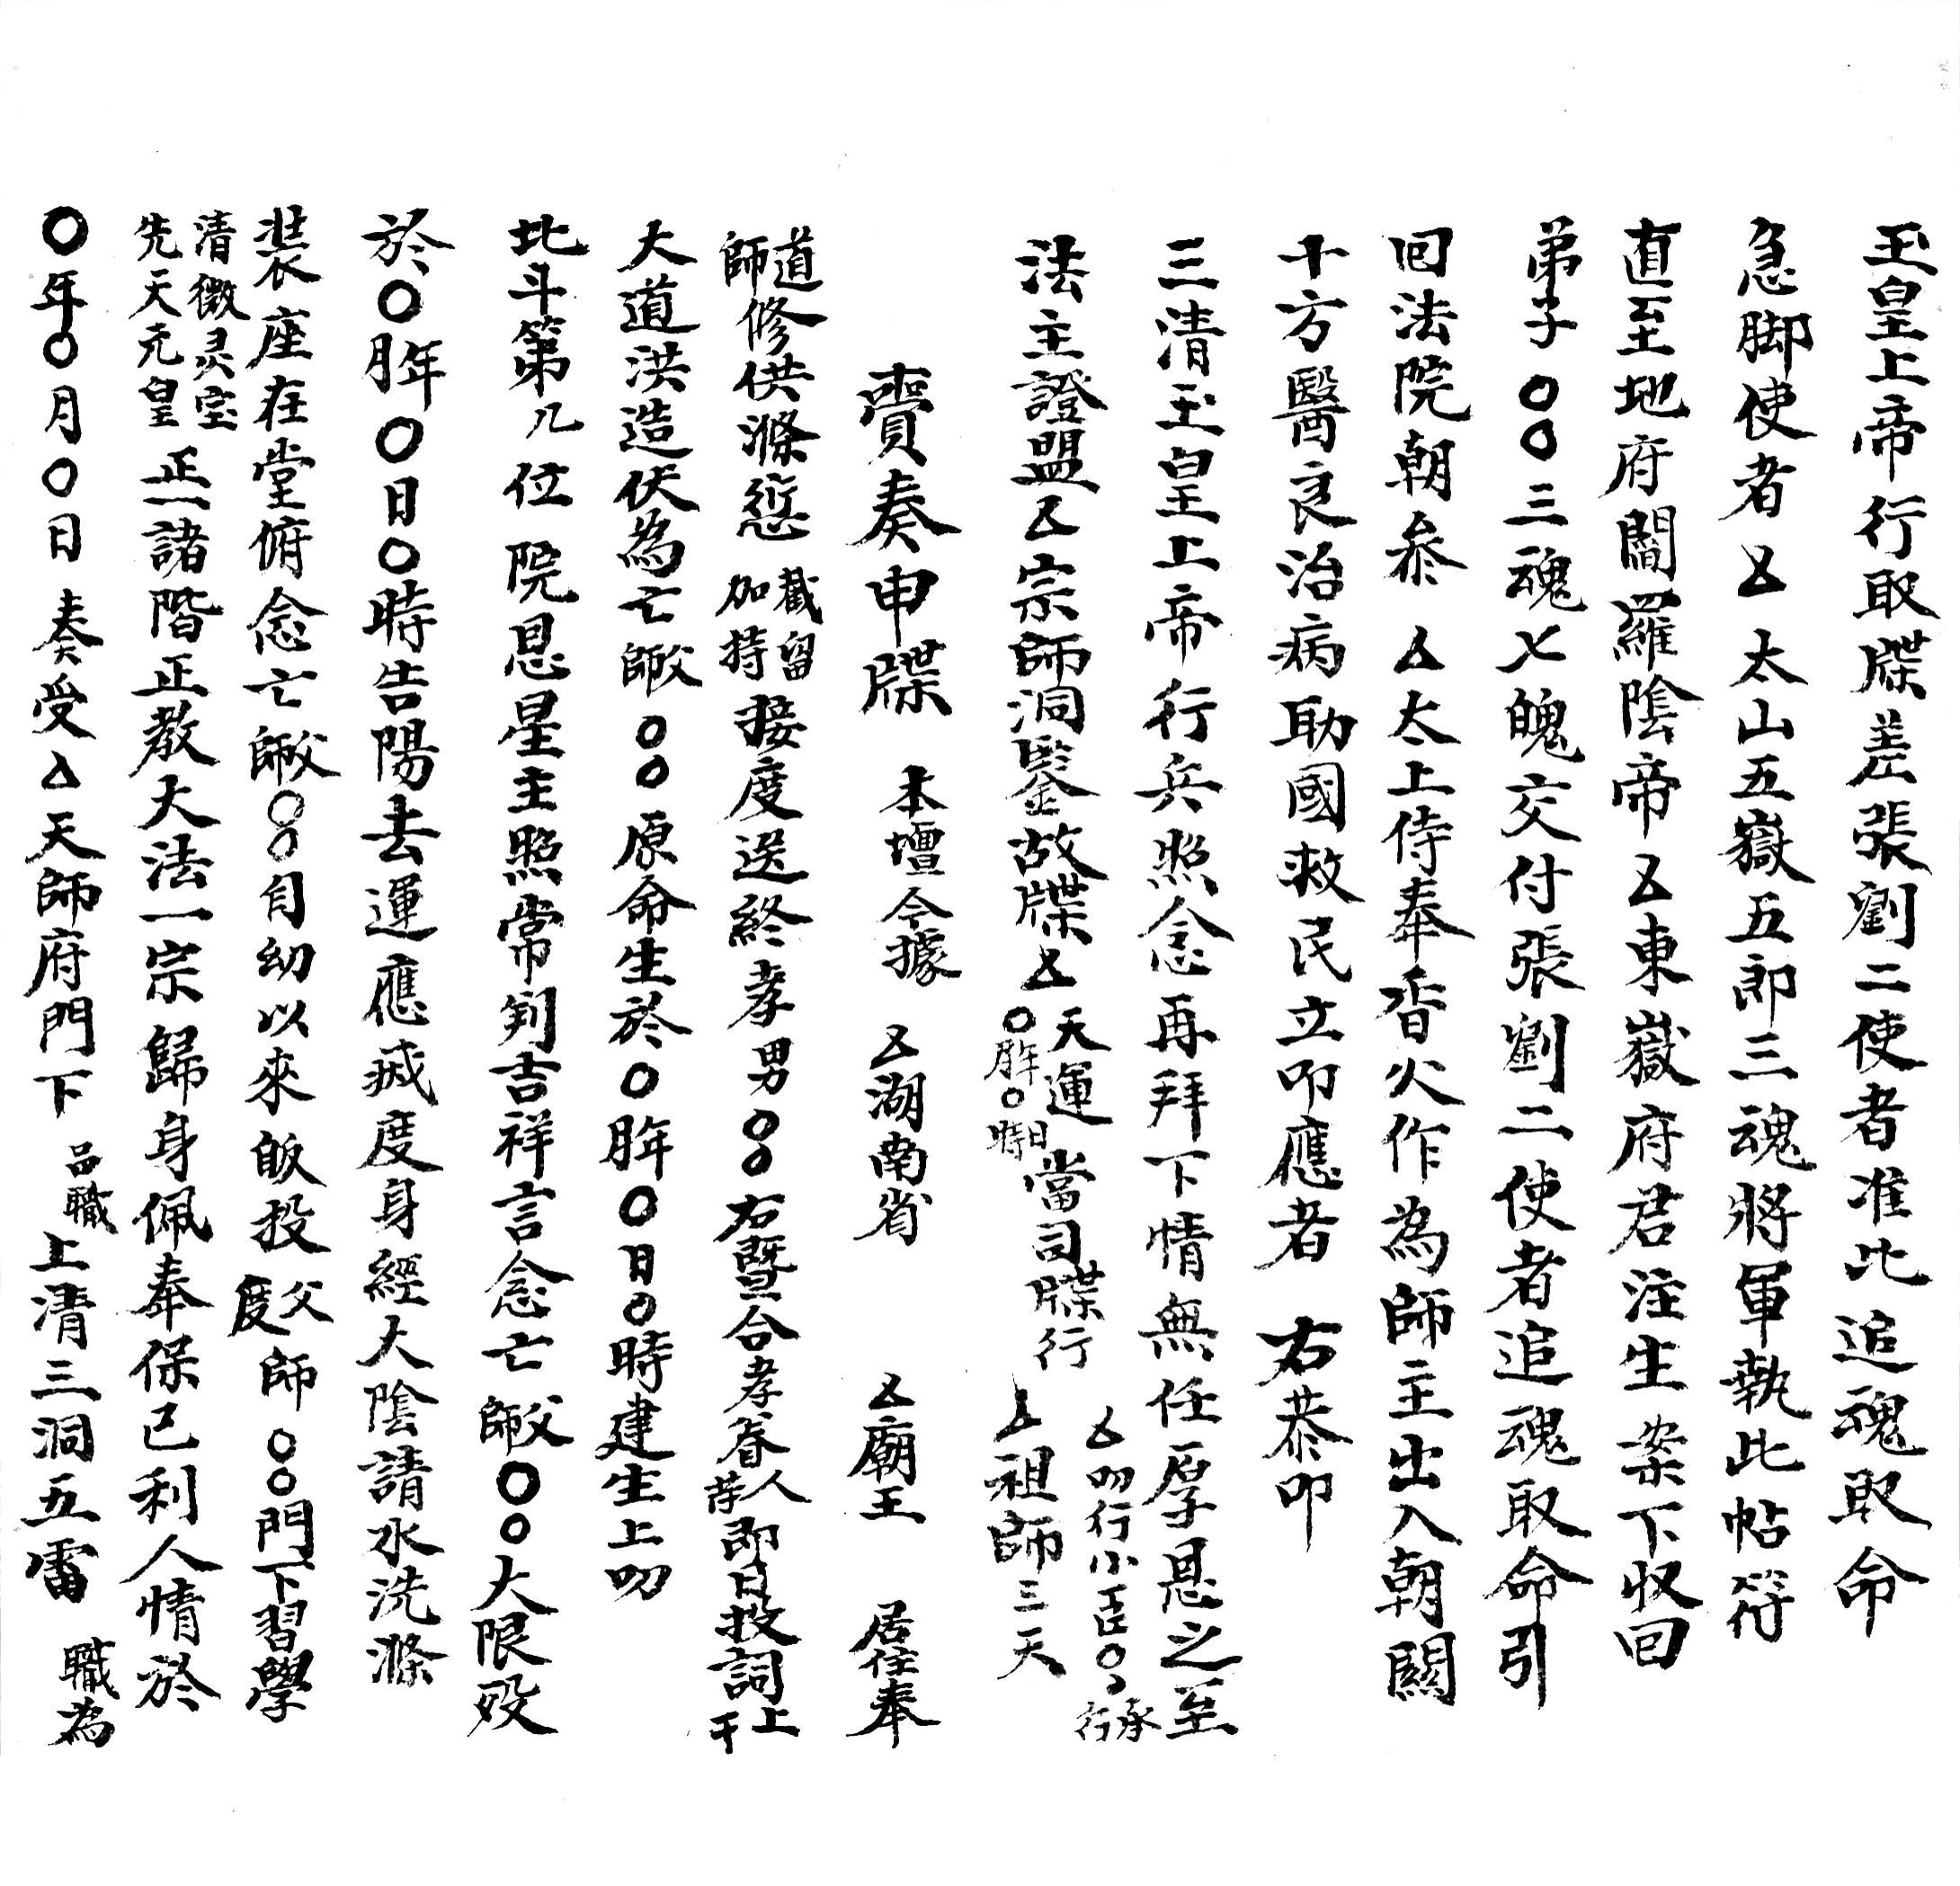 玉皇上帝行取牒差張劉二使者准比追魂取命
急脚使者厶太山五嶽五郎三魂將軍執此帖符
直至地府閻羅陰帝厶東嶽府君注生案下收回
弟子〇〇三魂七魄交付張劉二使者追魂取命引
回法院朝叅厶太上侍奉香火作為師主出入朝闕
十方醫良治病助國救民立叩應者 右恭叩
三清玉皇上帝行兵照念再拜下情無任厚恩之至
厶叩行小臣〇〇承行
法主證盟厶宗師洞鑒故牒厶天運〇年月〇日時當司牒行厶祖師三天
賫奏申牒 本壇今據 厶湖南省 厶廟王 居住奉
道師修供滌愆截留加持接度送終孝男〇〇右暨合孝眷人等即日投詞上干
大道洪造伏為亡師父〇〇原命生於〇年月〇日〇時建生上叨
北斗第几位院恩星主照常判吉祥言念亡師父〇〇大限殁
於〇年月〇日〇時告陽去運應戒度身經大陰請水洗滌
裝座在堂俯念亡師父〇〇自幼以來皈投度父師〇〇門下習學
清微灵宝先天元皇正一諸階正教大法一宗歸身佩奉保己利人情於
〇年〇月〇日奏受厶天師府門下品職上清三洞五雷 職為